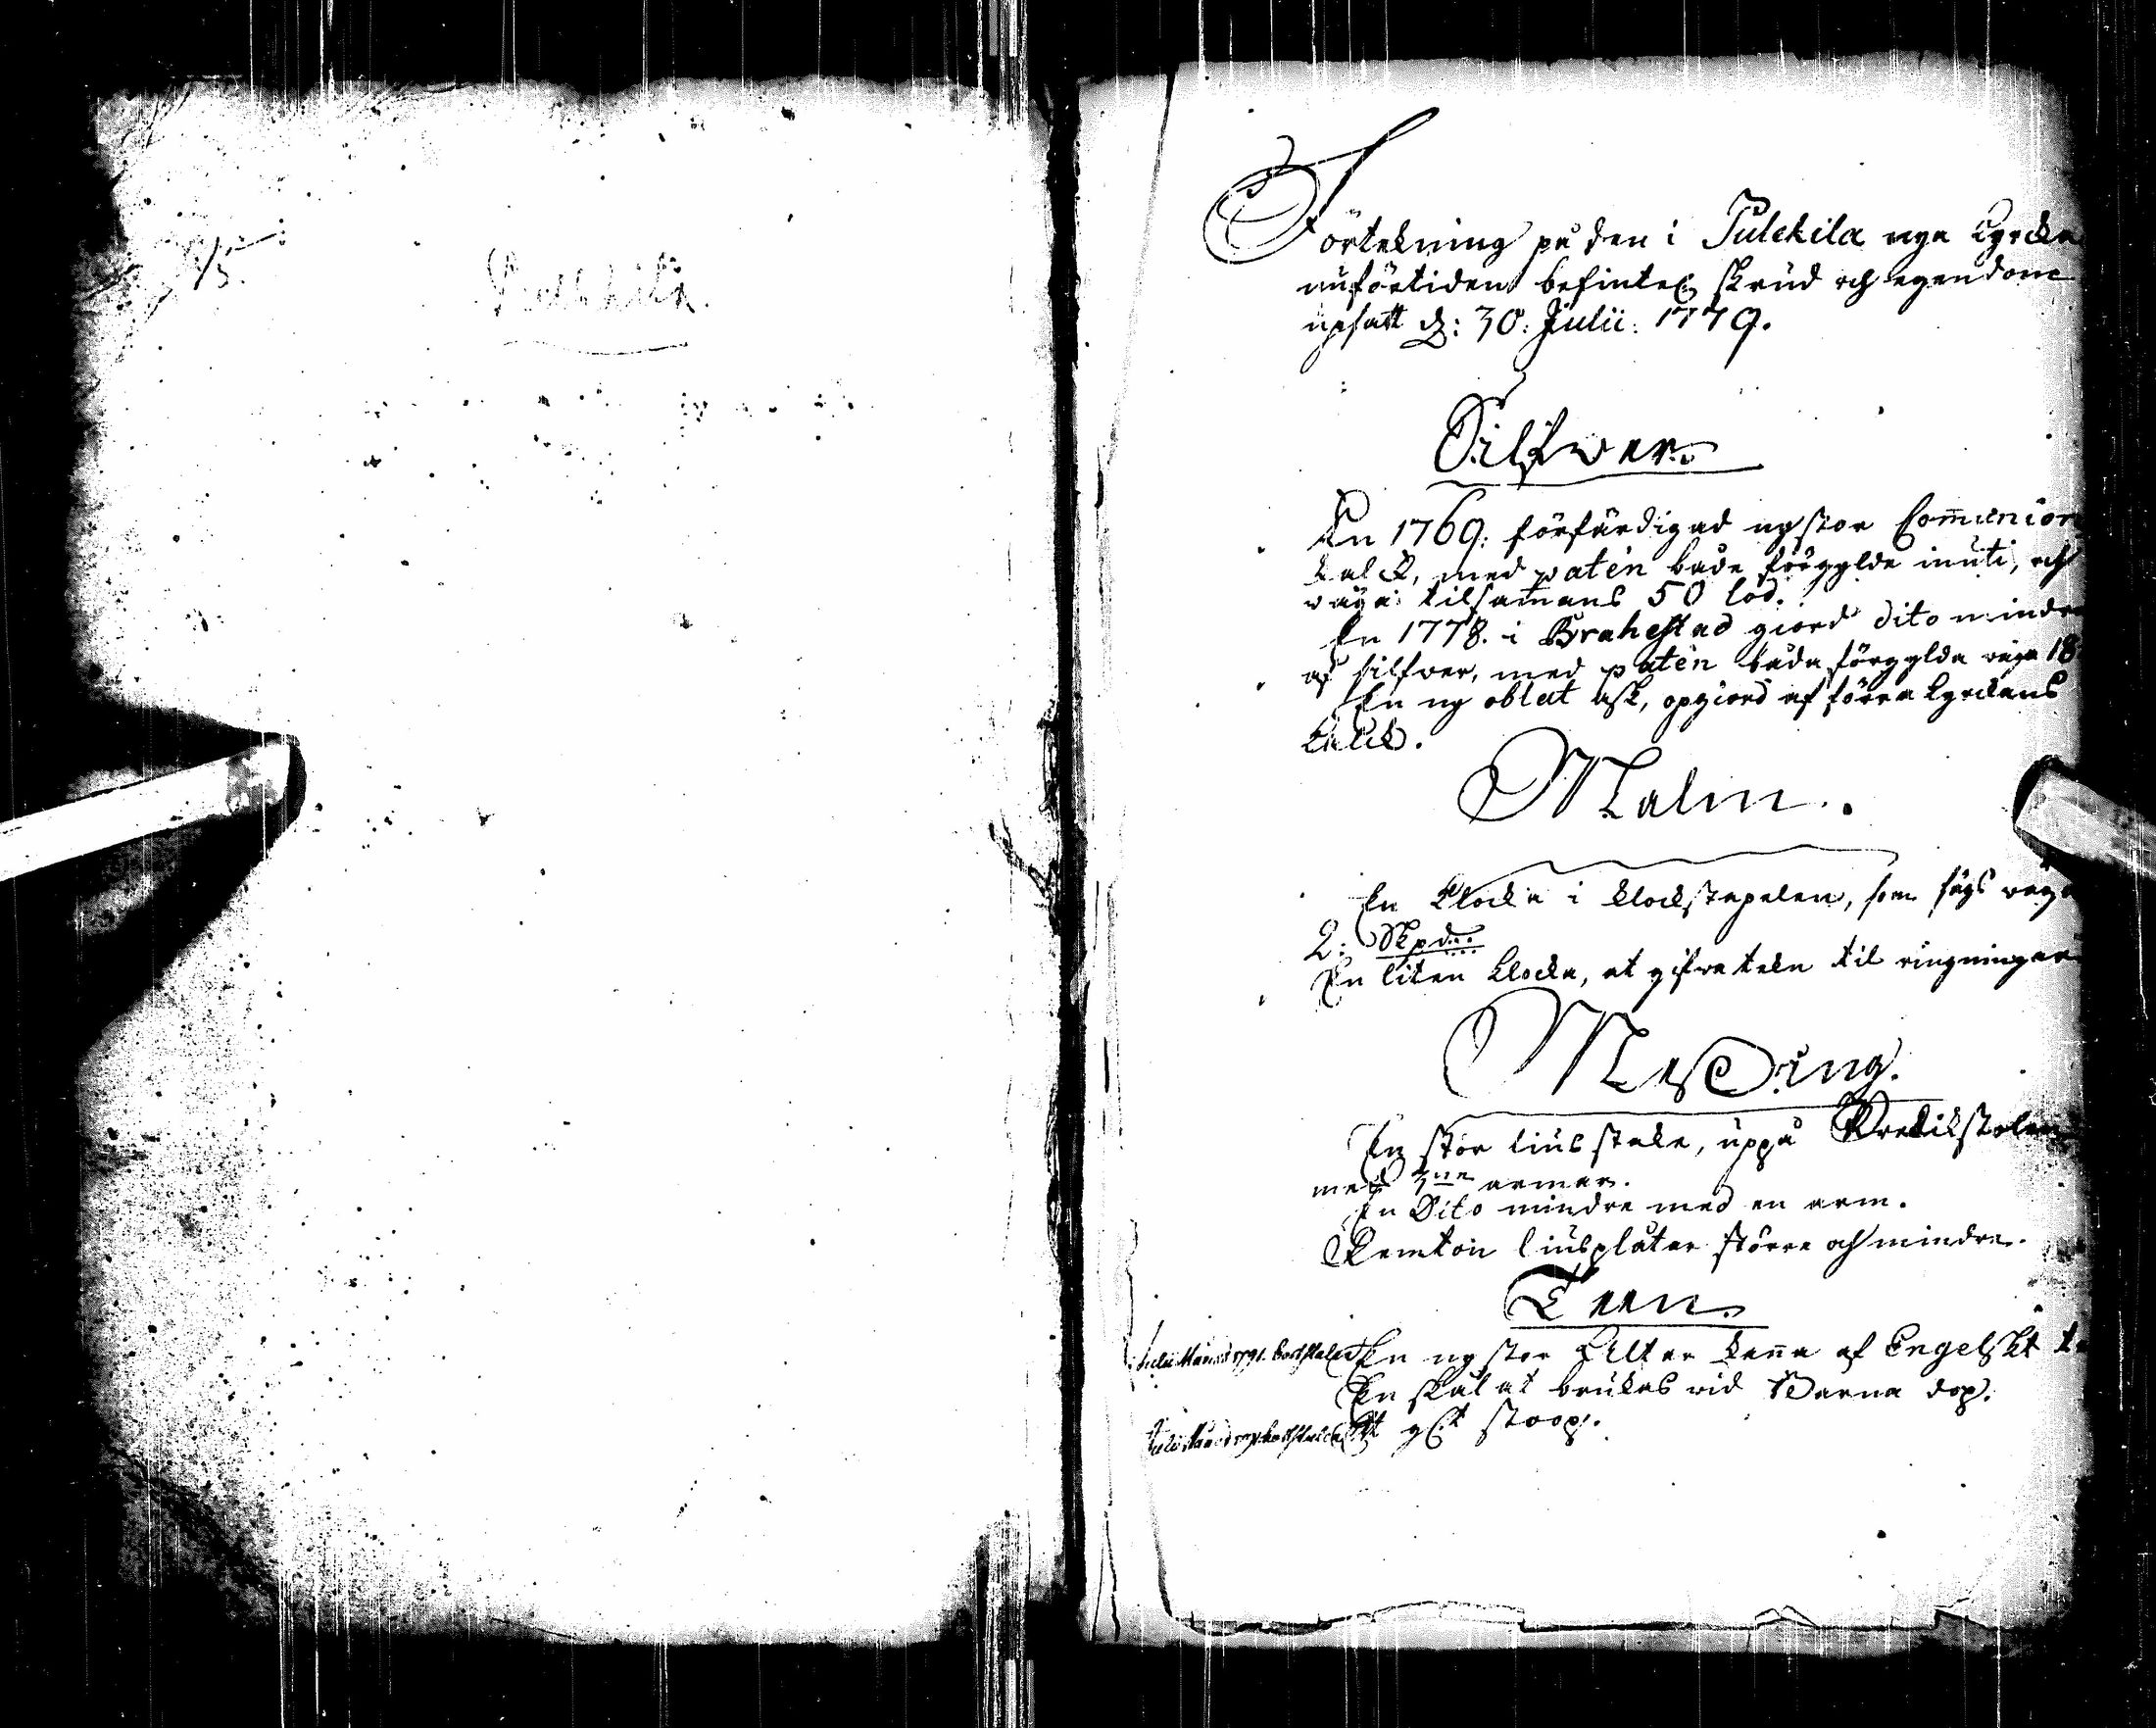 Pulckila.
Förtekning på den i Pulckila nya Kyrcka
nuförtiden befintel. skrud och egendom
upsatt d: 30: Julii: 1779.
Silfwer.
En 1769: förfärdigad ny stor Com̄union
kalck, med patén både förgylde inuti, och
wäga tilsam̄ans 50 lod.
En 1778. i Brahestad giord dito mindre
af silfwer, med patén båda förgylda wäga 18
En ny oblat ask, opgiord af förra kyrckans
kalck.
Malm.
En klocka i klockstapelen, som sägs wäga
2: Skpd:
En liten klocka, at gifwa tekn til ringningar
Messing.
En stor liusstake, uppå Predikstolen
med 3ne armar.
En Dito mindre med en arm.
Femton liusplåtar större och mindre.
Teen.
Julii Månad 1791. bortstulen
En ny stor Altar kan̄a af Engelskt te
En skål at brukas vid Barna dop.
Julii Månad 1791 bortstulen
Ett stoop.